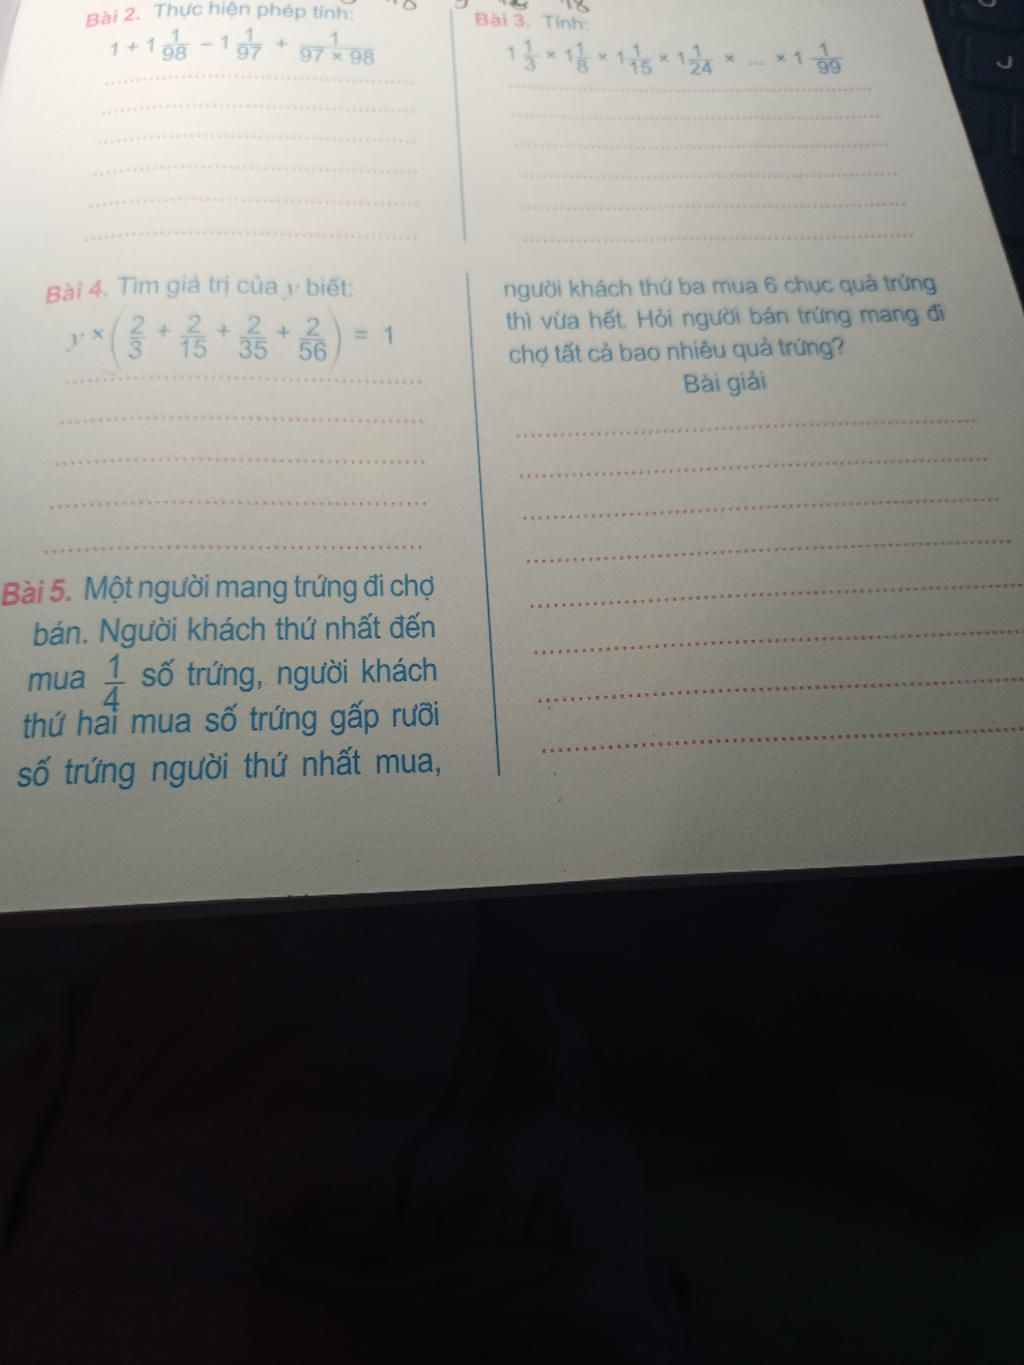 Bài 2. Thực hiện phép tính:
1 + 1 1/98 - 1 1/97 + 1/(97 × 98)
Bài 3. Tính:
1 1/3 × 1 1/8 × 1 1/15 × 1 1/24 × ... × 1 1/99
Bài 4. Tìm giá trị của y biết:
y × (2/3 + 2/15 + 2/35 + 2/56) = 1
Bài 5. Một người mang trứng đi chợ
bán. Người khách thứ nhất đến
mua 1/4 số trứng, người khách
thứ hai mua số trứng gấp rưỡi
số trứng người thứ nhất mua,
người khách thứ ba mua 6 chục quả trứng
thì vừa hết. Hỏi người bán trứng mang đi
chợ tất cả bao nhiêu quả trứng?
Bài giải